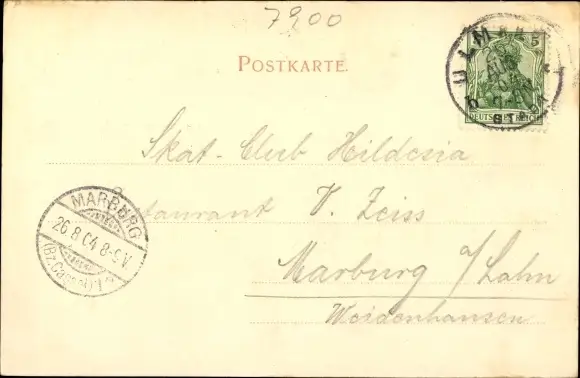 7900
POSTKARTE.
ULM
5
DEUTSCHES REICH
Skat-Club Hildesia
Restaurant V. Zeiss
Marburg a/Lahn
Weidenhausen
MARBURG
26.8.04.8-9V.
(Bz.Cassel)1